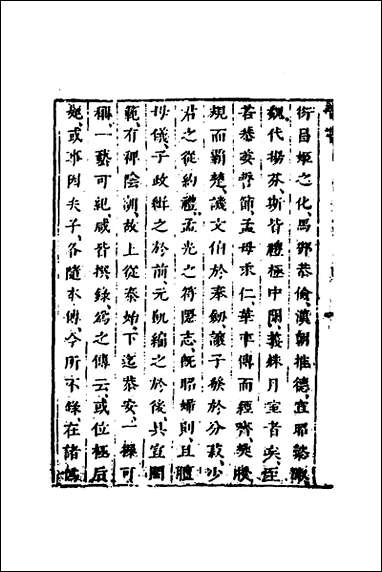 衍昌姬之化、馬鄧恭儉、漢朝推德、宣昭懿淑、
魏代揚芬、斯皆禮極中闈、義殊月室者矣、至
若恭姜誓節、孟母求仁、華率傅而經齊、樊授
規而霸楚、譏文伯於奉劍、讓子發於分菽、少
君之從約禮、孟光之符隱志、既昭婦則、且擅
母儀、子政緝之於前、元凱編之於後、具宣閨
範、有裨陰訓、故上從泰始、下迄恭安、一操可
稱、一藝可紀、咸皆撰錄、為之傳云、或位極后
妃、或事因夫子、各隨本傳、今所不錄、在諸偽